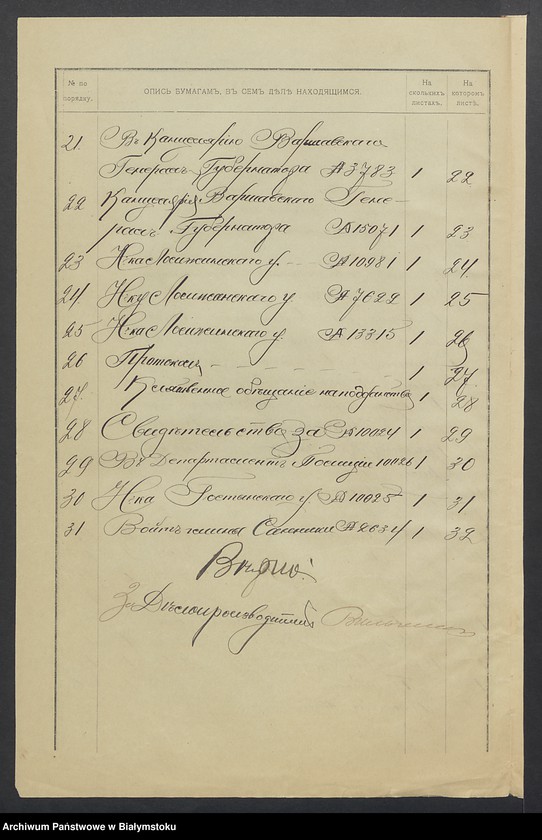 № по порядку.
ОПИСЬ БУМАГАМЪ, ВЪ СЕМЪ ДѢЛѢ НАХОДЯЩИМСЯ.
На сколькихъ листахъ.
На которомъ листѣ.
21. Въ Канцелярію Варшавскаго
Генералъ Губернатора № 3783 1 22
22 Канцелярія Варшавскаго Гене-
ралъ Губернатора № 15071 1 23
23 Н-ка Ломжинскаго у. № 10981 1 24
24 Н-ку Ломжинскаго у. № 7629 1 25
25 Н-ка Ломжинскаго у. № 13315 1 26
26 Протоколъ 1 27
27. Клятвенное обѣщаніе на подданство 1 28
28 Свидѣтельство за № 10024 1 29
29 Въ Департаментъ Полиціи 10026 1 30
30 Н-ка Гостынскаго у. № 10025 1 31
31 Войтъ гмины № 2634 1 32
Вѣрно:
За Дѣлопроизводителя
Archiwum Państwowe w Białymstoku